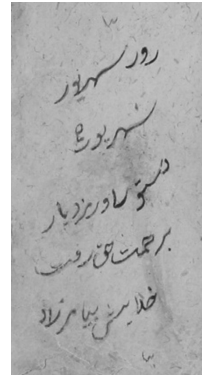 روز شهریور
شهریور ماه
دستور داور یزدیار
برحمت حق رفت
خدایش بیامرزاد